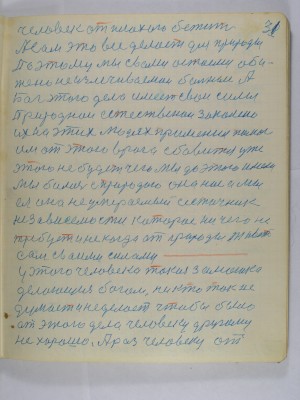 31
человек от плохого бежит
А сам это все делает для природы
Поэтому мы с вами остаемся оби-
жено неизлечиваемой больным А
Бог этого дела имеет свои силы
Природной естественной законно
их на этих людях применил
им от этого врага избавится уже
этого не будет чего мы до этого имели
Мы были с природою она нас имел
ел она не умираемый источник
независемости которае ничего не
требует и некогда от природы живет
сам своими силами
У этого человека такая замашка
делающия богом, никто так не
думает и неделает чтобы было
от этого дела человеку другому
не хорошо. А раз человеку от